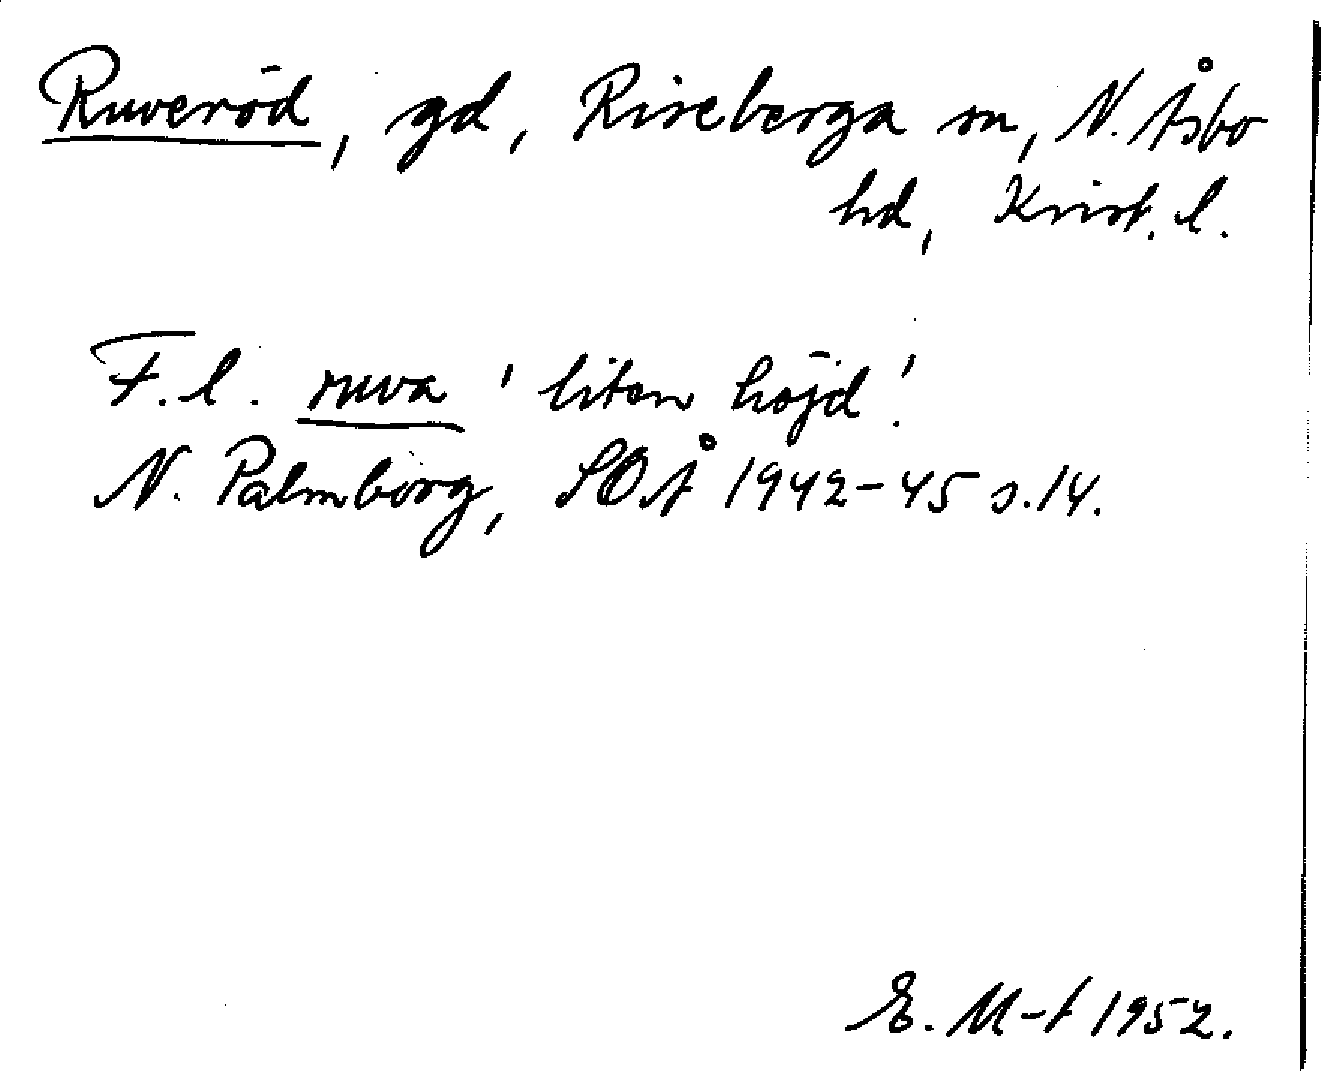 Ruveröd, gd, Riseberga sn, N. Åsbo
hd, Krist. l.
F. l. ruva 'liten höjd'.
N. Palmborg, SOÅ 1942-45 s.14.
E. M-t 1952.